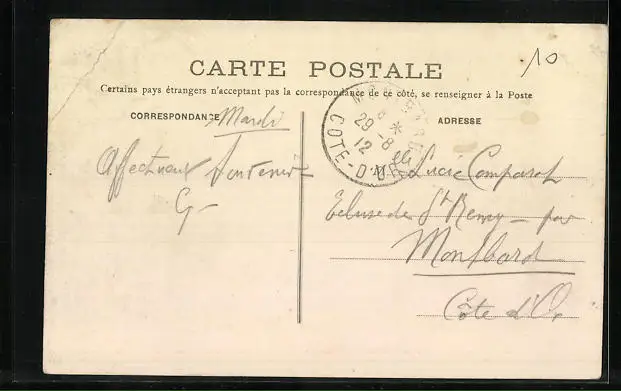 10
CARTE POSTALE
Certains pays étrangers n'acceptant pas la correspondance de ce côté, se renseigner à la Poste
CORRESPONDANCE
ADRESSE
Mardi
Affectueux Souvenir
G-
29-8
12
COTE-D'OR
Mlle Lucie Comparot
Ecluse de St Remy - par
Montbard
Côte d'Or